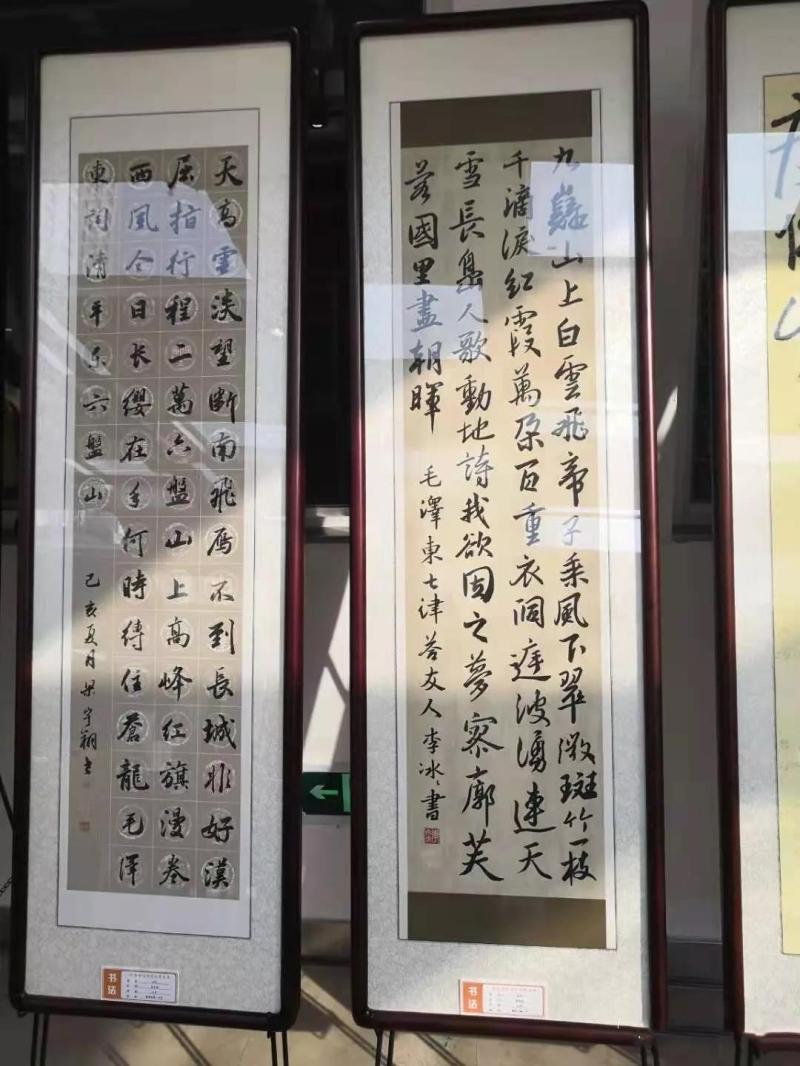 天高雲淡望断南飛雁不到長城非好漢
屈指行程二萬六盤山上高峰红旗漫卷
西風今日长纓在手何時缚住蒼龍毛泽
東詞清平乐六盤山
己亥夏月梁宇翔书
书法
九嶷山上白雲飛帝子乘風下翠微斑竹一枝
千滴淚红霞萬朶百重衣洞庭波湧連天
雪長島人歌動地詩我欲因之夢寥廓芙
蓉國里盡朝暉 毛澤東七律答友人李冰冰書
书法